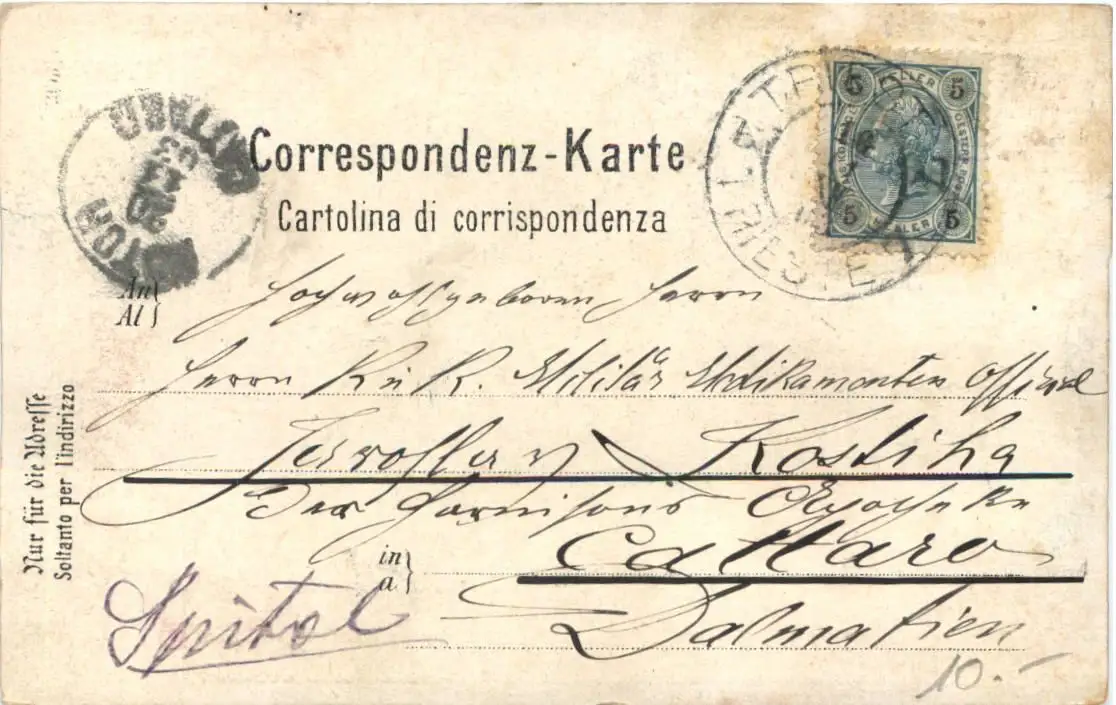 Correspondenz-Karte
Cartolina di corrispondenza
5 HELLER 5
5 HELLER 5
TRIESTE
CATTARO
20
An
Al
Hochwohlgeboren Herrn
Herrn K u K. Militär Medikamenten Official
Kostiha
Der Garnisons Apotheke
in
a
Cattaro
Dalmatien
Spital
Nur für die Adresse
Soltanto per l'indirizzo
10.-